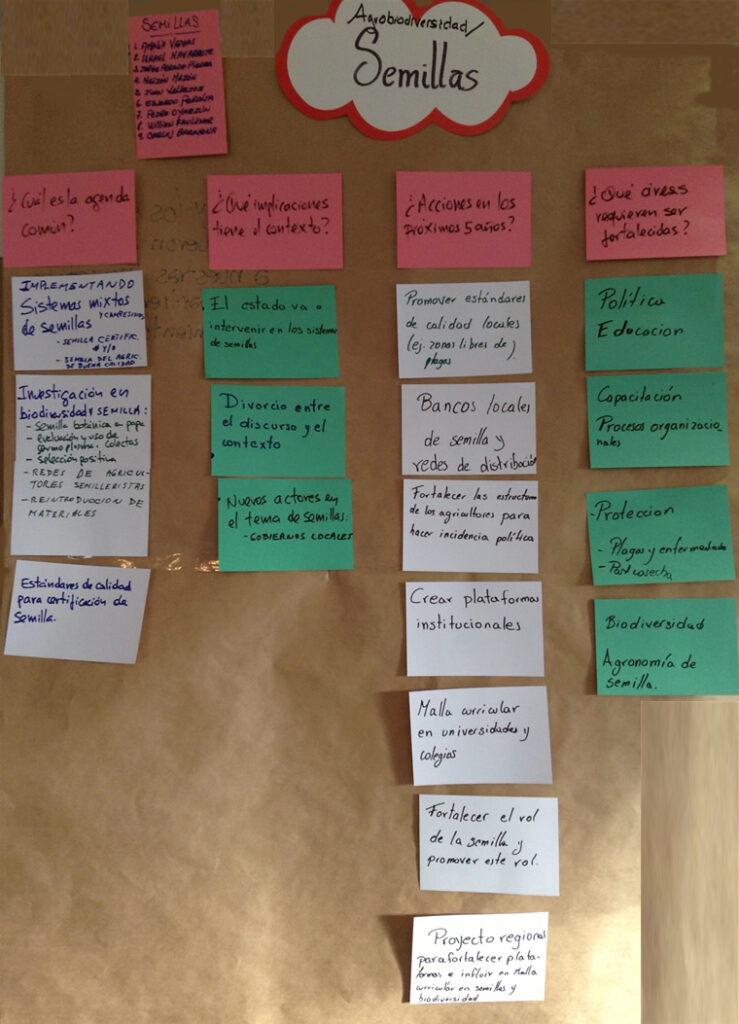 Agrobiodiversidad/
Semillas
SEMILLAS
2. ISRAEL NAVARRETE
¿Cuál es la agenda
común?
IMPLEMENTANDO
Sistemas mixtos
Y CAMPESINOS
de semillas
- SEMILLA CERTIFIC.
Y/O
- SEMILLA DEL AGRIC.
DE BUENA CALIDAD
Investigación en
biodiversidad y SEMILLA:
- Semilla botánica papa
- evaluación y uso de
germoplasma. colectas
- selección positiva
- REDES DE AGRICUL-
TORES SEMILLERISTAS
- REINTRODUCCION DE
MATERIALES
Estándares de calidad
para certificación de
Semilla.
¿Qué implicaciones
tiene el contexto?
El estado va a
intervenir en los sistemas
de semillas
Divorcio entre
el discurso y el
contexto
Nuevos actores en
el tema de semillas:
- GOBIERNOS LOCALES
¿Acciones en los
próximos 5 años?
Promover estándares
de calidad locales
(ej. zonas libres de
plagas)
Bancos locales
de semilla y
redes de distribución
Fortalecer las estructuras
de los agricultores para
hacer incidencia política
Crear plataformas
institucionales
Malla curricular
en universidades y
colegios
Fortalecer el rol
de la semilla y
promover este rol.
Proyecto regional
para fortalecer plata-
formas e influir en Malla
curricular en semillas y
biodiversidad
¿Qué áreas
requieren ser
fortalecidas?
Política
Educacion
Capacitación
Procesos organizacio-
nales
- Proteccion
- Plagas y enfermedades
- Postcosecha
Biodiversidad
Agronomía de
semilla.